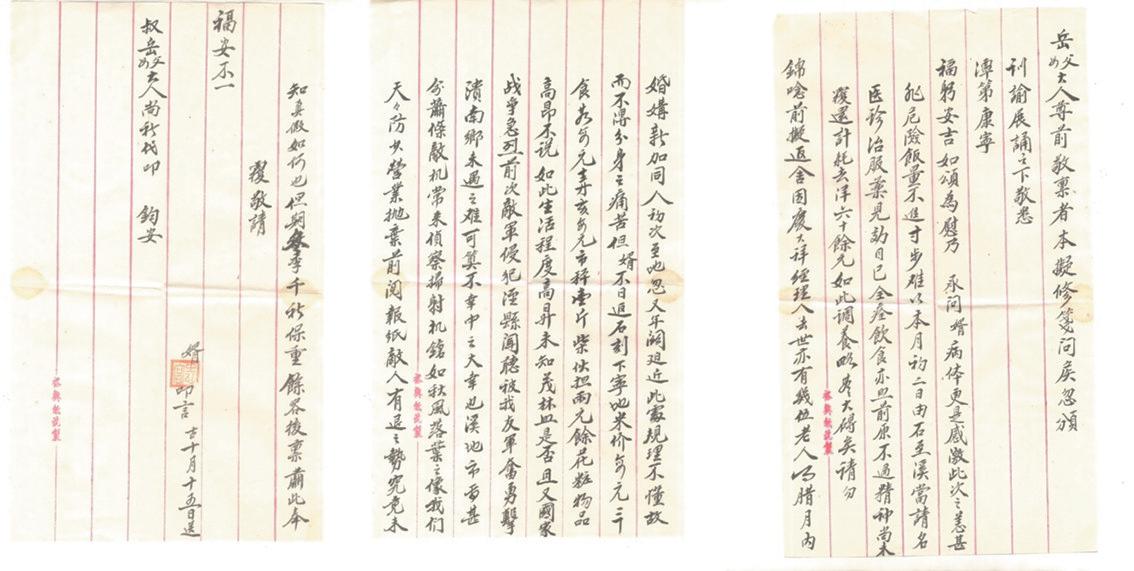 岳父母大人尊前敬禀者本擬修箋问矣忽頒
刊諭展誦之下敬悉
潭第康寧
福躬安吉如頌為慰乃 承问婿病体更是感激此次之恙甚
非危险飯量不进寸步难以本月初二日由石至溪當請名
医珍治服薬見効目已全痊飲食亦照前原不过精神尚未
復還計耗去洋六十餘元如此調養略 大碍矣請勿
錦唸前擬返舍因慶大祥經理人去世亦有幾位老人均腊月内
婚媾新加同人初次至地忽又年関迫近此處現理不懂故
而不得分身之痛苦但婿不日返石刻下寧地米价每元三斤
食盐每元弄亥每元市秤壹斤柴伙担兩元餘花粧物品
高昂不说如此生活程度高昇未知茂林皿是否且又國家
战争急烈前次敵軍侵犯涇縣闻聴被我友軍奮勇擊
潰南鄉未遇之难可算不幸中之大幸也溪地市面甚
分蕭條敵机常来偵察掃射机鎗如秋風落葉之像我们
天々防步營業抛棄前阅報紙敵人有退之勢究竟未
知真假如何也但期冬季千祈保重餘容後禀肅此奉
覆敬請
福安不一
叔岳父母大人尚祈代叩 鈞安
婿 叩言 古十月十五日送